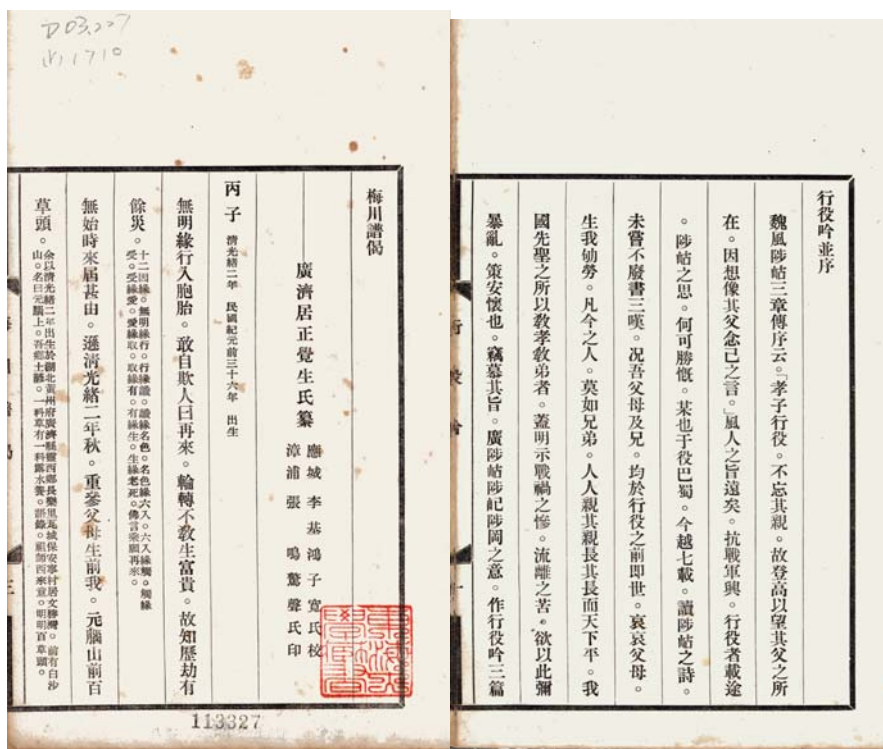 行役吟並序
魏風陟岵三章傳序云。「孝子行役。不忘其親。故登高以望其父之所
在。因想像其父念己之言。」風人之旨遠矣。抗戰軍興。行役者載途
。陟岵之思。何可勝慨。某也于役巴蜀。今越七載。讀陟岵之詩。
未嘗不廢書三嘆。况吾父母及兄。均於行役之前即世。哀哀父母。
生我劬勞。凡今之人。莫如兄弟。人人親其親長其長而天下平。我
國先聖之所以敎孝敎弟者。蓋明示戰禍之慘。流離之苦。欲以此彌
暴亂。策安懷也。竊慕其旨。廣陟岵陟屺陟岡之意。作行役吟三篇
D03.227
113327
梅川譜偈
廣濟居正覺生氏纂
應城李基鴻子寬氏校
漳浦張鳴驚聲氏印
丙子 清光緒二年 民國紀元前三十六年 出生
無明緣行入胞胎。敢自欺人曰再來。輪轉不敎生富貴。故知歷劫有
餘災。十二因緣。無明緣行。行緣識。識緣名色。名色緣六入。六入緣觸。觸緣
受。受緣愛。愛緣取。取緣有。有緣生。生緣老死。佛言乘願再來。
無始時來屆甚由。遜清光緒二年秋。重參父母生前我。元膓山前百
草頭。余以清光緒二年出生於湖北黃州府廣濟縣靈西鄉長樂里瓦城保安寧村居文勝灣。前有白沙
山。名曰元膓上。吾鄉土諺。一科草有一科露水養。語錄。祖師西來意。明明百草頭。